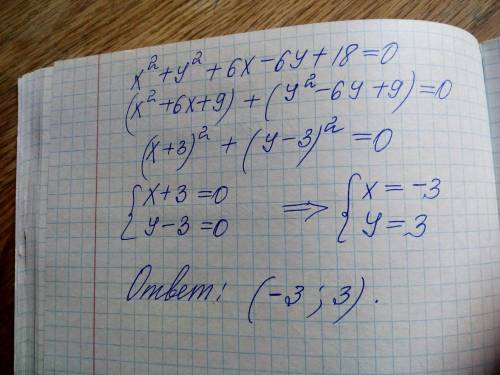 x² + y² + 6x - 6y + 18 = 0
(x² + 6x + 9) + (y² - 6y + 9) = 0
(x + 3)² + (y - 3)² = 0
{ x + 3 = 0 ⇒ { x = -3
y - 3 = 0 y = 3
Ответ: (-3 ; 3).